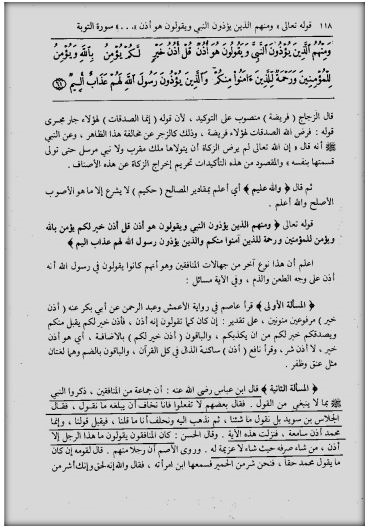 ١١٨ قوله تعالى « ومنهم الذين يؤذون النبي ويقولون هو أذن »... سورة التوبة
وَمِنْهُمُ الَّذِينَ يُؤْذُونَ النَّبِيَّ وَيَقُولُونَ هُوَ أُذُنٌ قُلْ أُذُنُ خَيْرٍ لَّكُمْ يُؤْمِنُ بِاللَّهِ وَيُؤْمِنُ
لِلْمُؤْمِنِينَ وَرَحْمَةٌ لِّلَّذِينَ ءَامَنُوا مِنكُمْ وَالَّذِينَ يُؤْذُونَ رَسُولَ اللَّهِ لَهُمْ عَذَابٌ أَلِيمٌ ٦١
قال الزجاج ( فريضة ) منصوب على التوكيد ، لأن قوله ( إنما الصدقات ) لهؤلاء جار مجرى
قوله : فرض الله الصدقات لهؤلاء فريضة ، وذلك كالزجر عن مخالفة هذا الظاهر ، وعن النبي
ﷺ أنه قال « إن الله تعالى لم يرض بقسمة الزكاة أن يتولاها ملك مقرب ولا نبي مرسل حتى تولى
قسمتها بنفسه » والمقصود من هذه التأكيدات تحريم إخراج الزكاة عن هذه الأصناف .
ثم قال ﴿ والله عليم ﴾ أي أعلم بمقادير المصالح ( حكيم ) لا يشرع إلا ما هو الأصوب
الأصلح والله أعلم .
قوله تعالى ﴿ ومنهم الذين يؤذون النبي ويقولون هو أذن قل أذن خير لكم يؤمن بالله
ويؤمن للمؤمنين ورحمة للذين آمنوا منكم والذين يؤذون رسول الله لهم عذاب اليم ﴾
اعلم أن هذا نوع آخر من جهالات المنافقين وهو أنهم كانوا يقولون في رسول الله أنه
أذن على وجه الطعن والذم ، وفي الآية مسائل :
﴿ المسألة الأولى ﴾ قرأ عاصم في رواية الأعمش وعبد الرحمن عن أبي بكر عنه ( أذن
خير ) مرفوعين منونين ، على تقدير : إن كان كما تقولون إنه أذن ، فأذن خير لكم يقبل منكم
ويصدقكم خير لكم من ان يكذبكم ، والباقون ( أذن خير لكم ) بالاضافة ، أي هو أذن
خير ، لا أذن شر ، وقرأ نافع ( أذن ) ساكنة الذال في كل القرآن ، والباقون بالضم وهما لغتان
مثل عنق وظفر .
﴿ المسألة الثانية ﴾ قال ابن عباس رضي الله عنه : أن جماعة من المنافقين ، ذكروا النبي
ﷺ بما لا ينبغي من القول . فقال بعضهم لا تفعلوا فانا نخاف أن يبلغه ما نقول ، فقال
الجلاس بن سويد بل نقول ما شئنا ، ثم نذهب اليه ونحلف أنا ما قلنا ، فيقبل قولنا ، وإنما
محمد أذن سامعة ، فنزلت هذه الآية . وقال الحسن : كان المنافقون يقولون ما هذا الرجل إلا
أذن ، من شاء صرفه حيث شاء لا عزيمة له . وروى الأصم أن رجلا منهم . قال لقومه إن كان
ما يقول محمد حقا ، فنحن شر من الحمير فسمعها ابن امرأته ، فقال والله إنه لحق وإنك أشر من